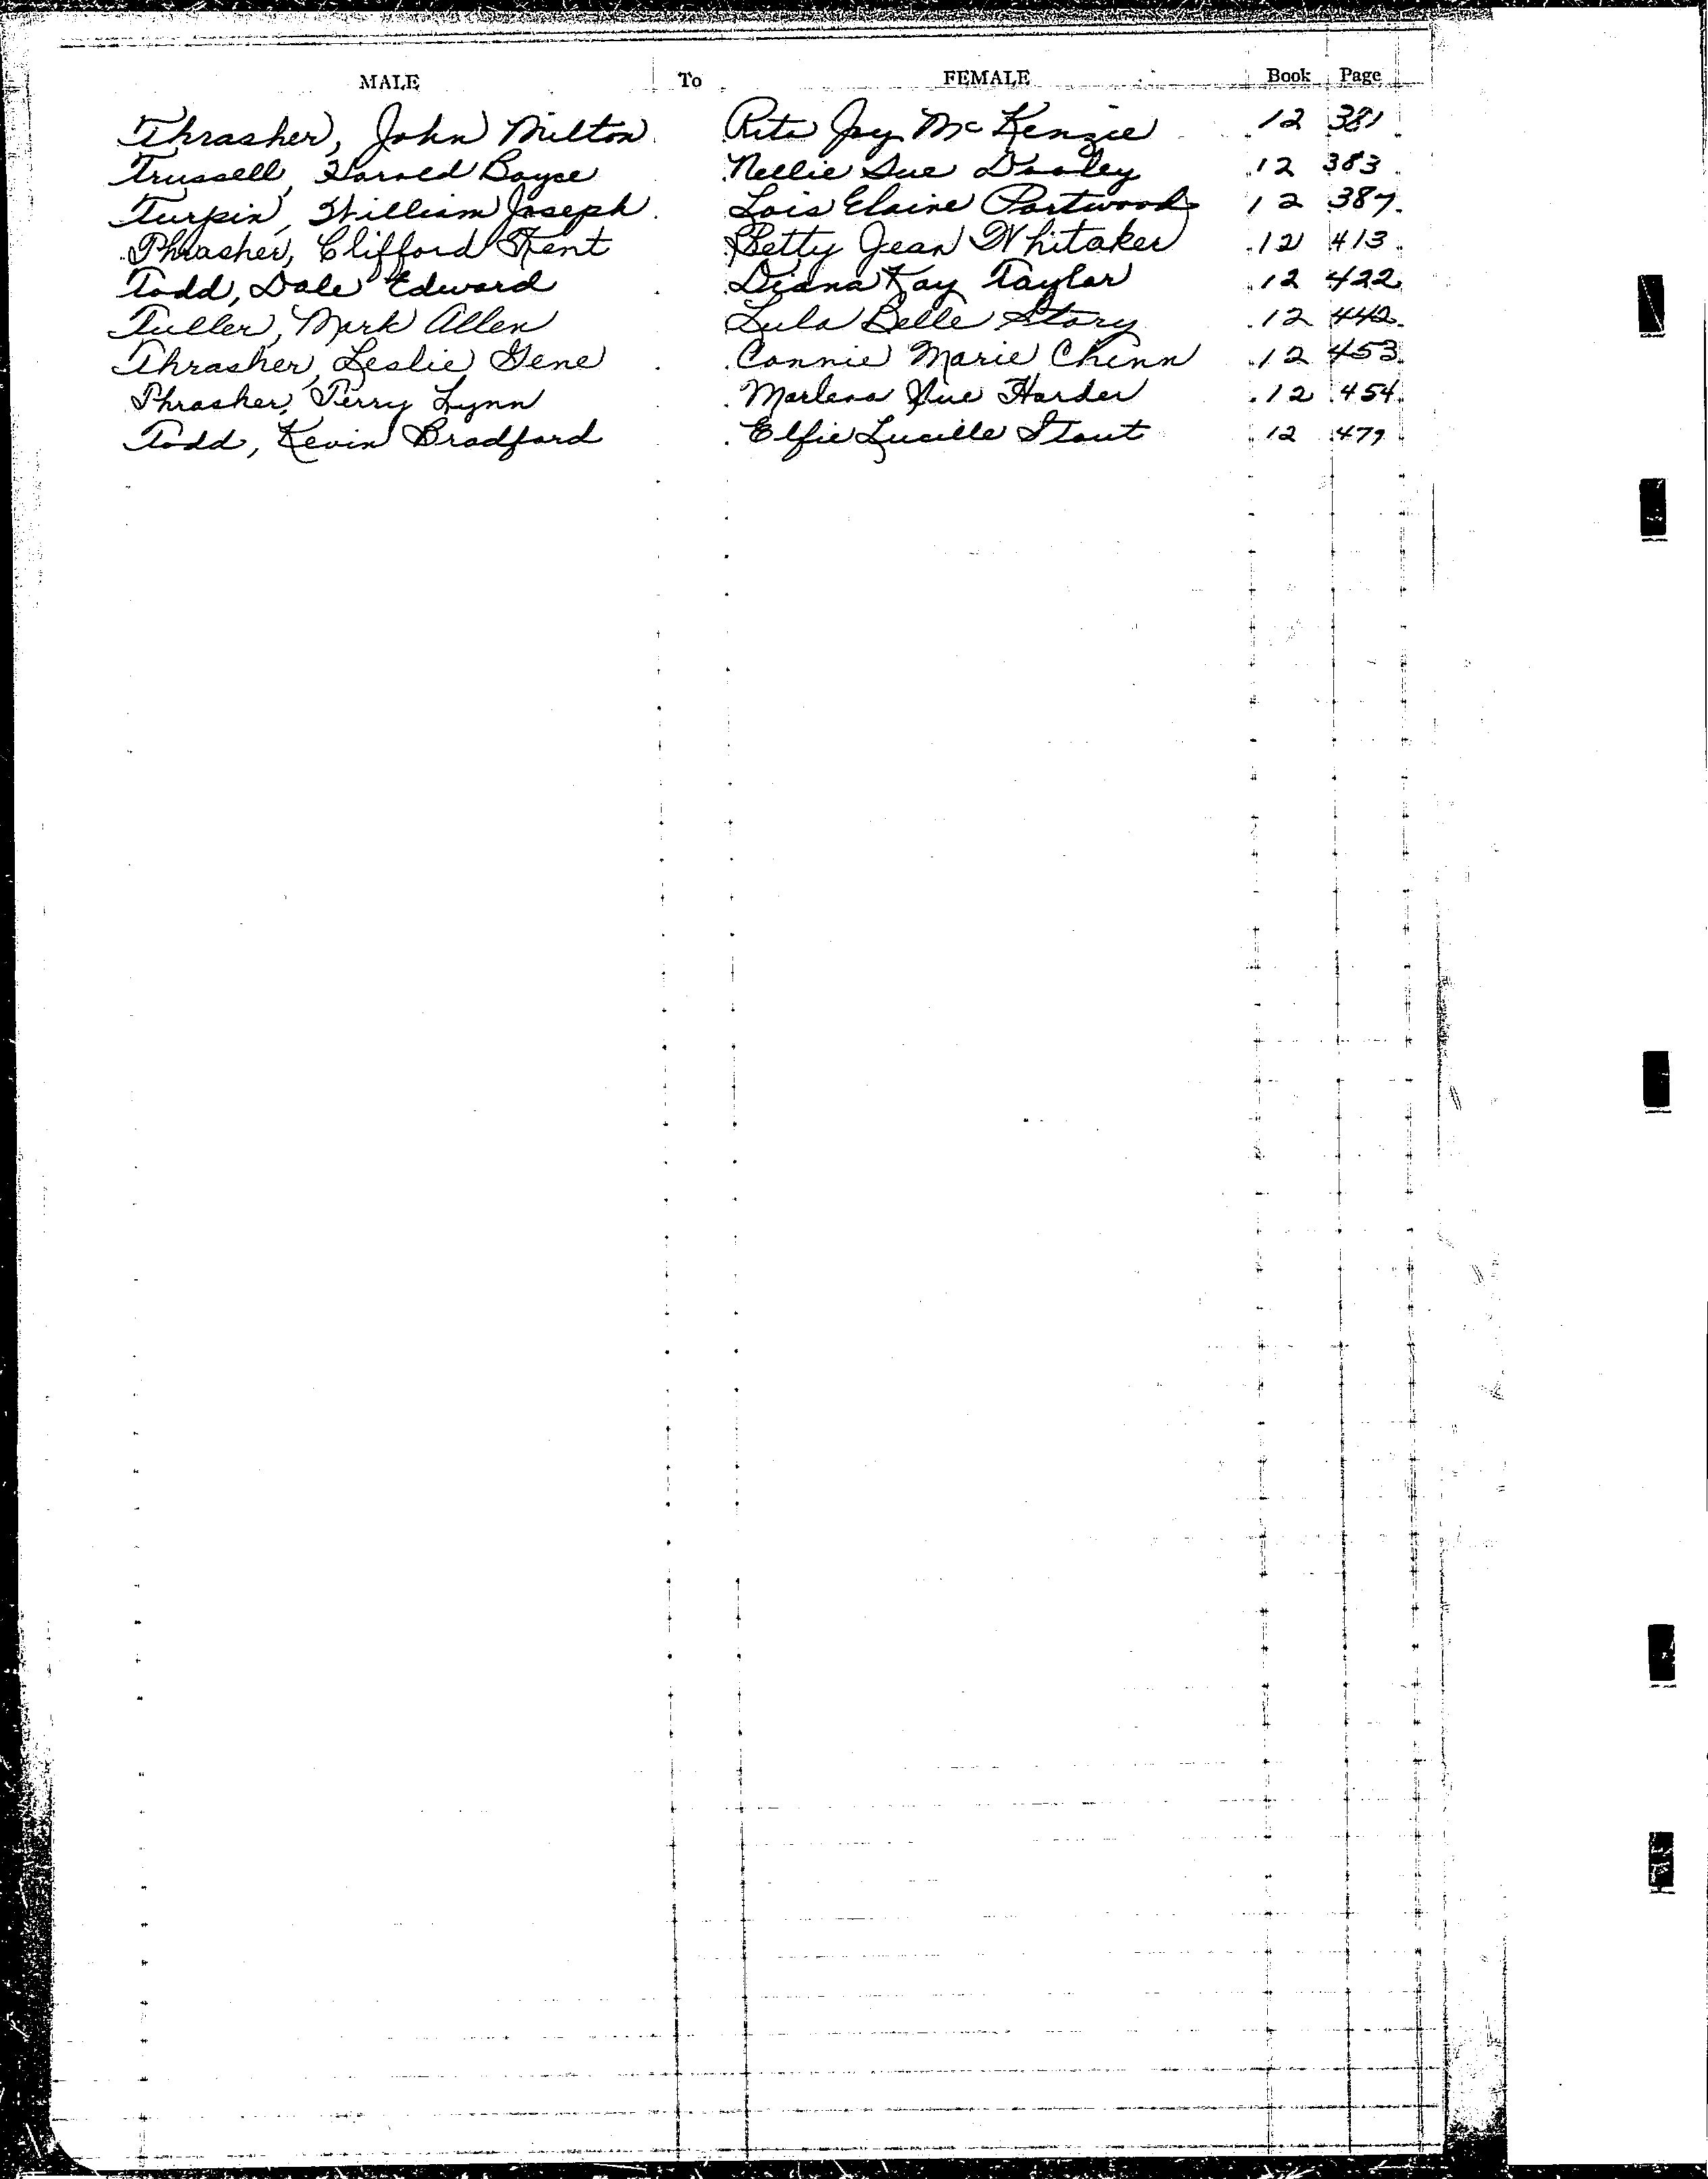 MALE To FEMALE Book Page
Thrasher, John Milton Rita Joy McKenzie 12 381
Trussell, Harold Boyce Nellie Sue Dooley 12 383
Turpin, William Joseph Lois Elaine Portwood 12 387
Thrasher, Clifford Kent Betty Jean Whitaker 12 413
Todd, Dale Edward Diana Kay Taylor 12 422
Tuller, Mark Allen Lula Belle Story 12 442
Thrasher, Leslie Gene Connie Marie Chinn 12 453
Thrasher, Terry Lynn Marlena Sue Harder 12 454
Todd, Kevin Bradford Elfie Lucille Stout 12 479